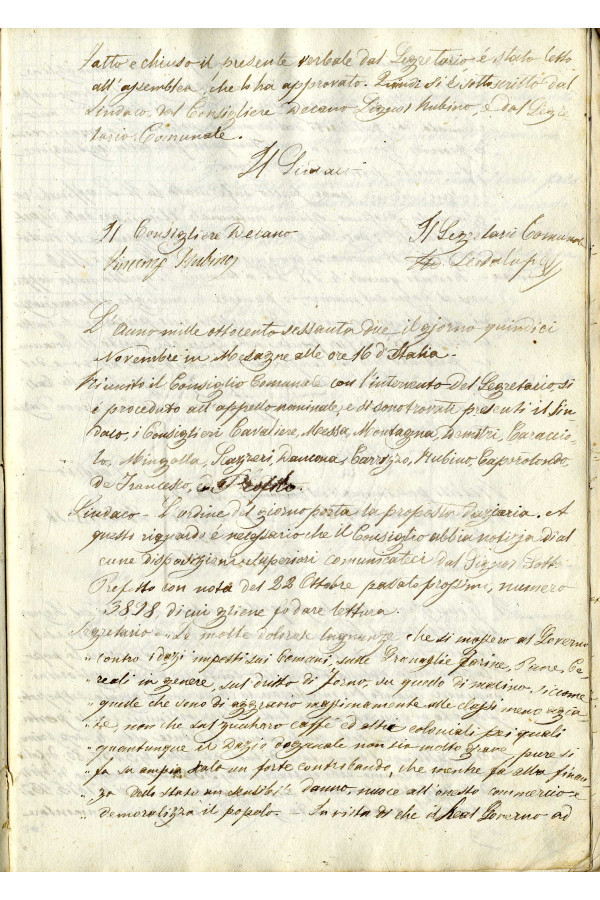 Fatto e chiuso il presente verbale dal Segretario è stato letto
all'assemblea, che lo ha approvato. Quindi si è sottoscritto dal
Sindaco dal Consigliere Decano Signor Rubino, e dal Segre
tario Comunale.
Il Sindaco
Il Consigliere Decano
Il Segretario Comunale
Vincenzo Rubino
L'anno mille ottocento sessanta due il giorno quindici
Novembre in Mesagne alle ore 16 d'Italia.
Riunito il Consiglio Comunale con l'intervento del Segretario, si
è proceduto all'appello nominale, e si sono trovati presenti il Sin
daco, i Consiglieri Cavaliere, Messa, Montagna, Demitri, Caraccio
lo, Mingolla, Scazzeri, Dancona, Carrozzo, Rubino, Caporotondo,
de Francesco, e Profilo.
Sindaco - L'ordine del giorno porta la proposta Daziaria. A
questo riguardo è necessario che il Consiglio abbia notizia di al
cune disposizioni superiori comunicateci dal Signor Sotto
Prefetto con nota del 22 Ottobre passato prossimo, numero
3898, di cui gliene fo dare lettura.
Segretario - "Le molte dolorose lagnanze che si mossero al Governo
" contro i dazi imposti sui Comani, sulle Granaglie Farine, Paste, Ce
" reali in genere, sul dritto di forno, su questo di molino, siccome
" quelle che sono di aggravio massimamente alle classi meno agia
" te, non che sul zuccaro caffè ed altri coloniali pei quali
" quantunque il Dazio doganale non sia molto grave, pure si
" fa su ampia scala un forte contrabando, che mentre fa alla finan
" za dello stato un sensibile danno, nuoce all'onesto commercio e
" demoralizza il popolo. - In vista di che il Real Governo ad